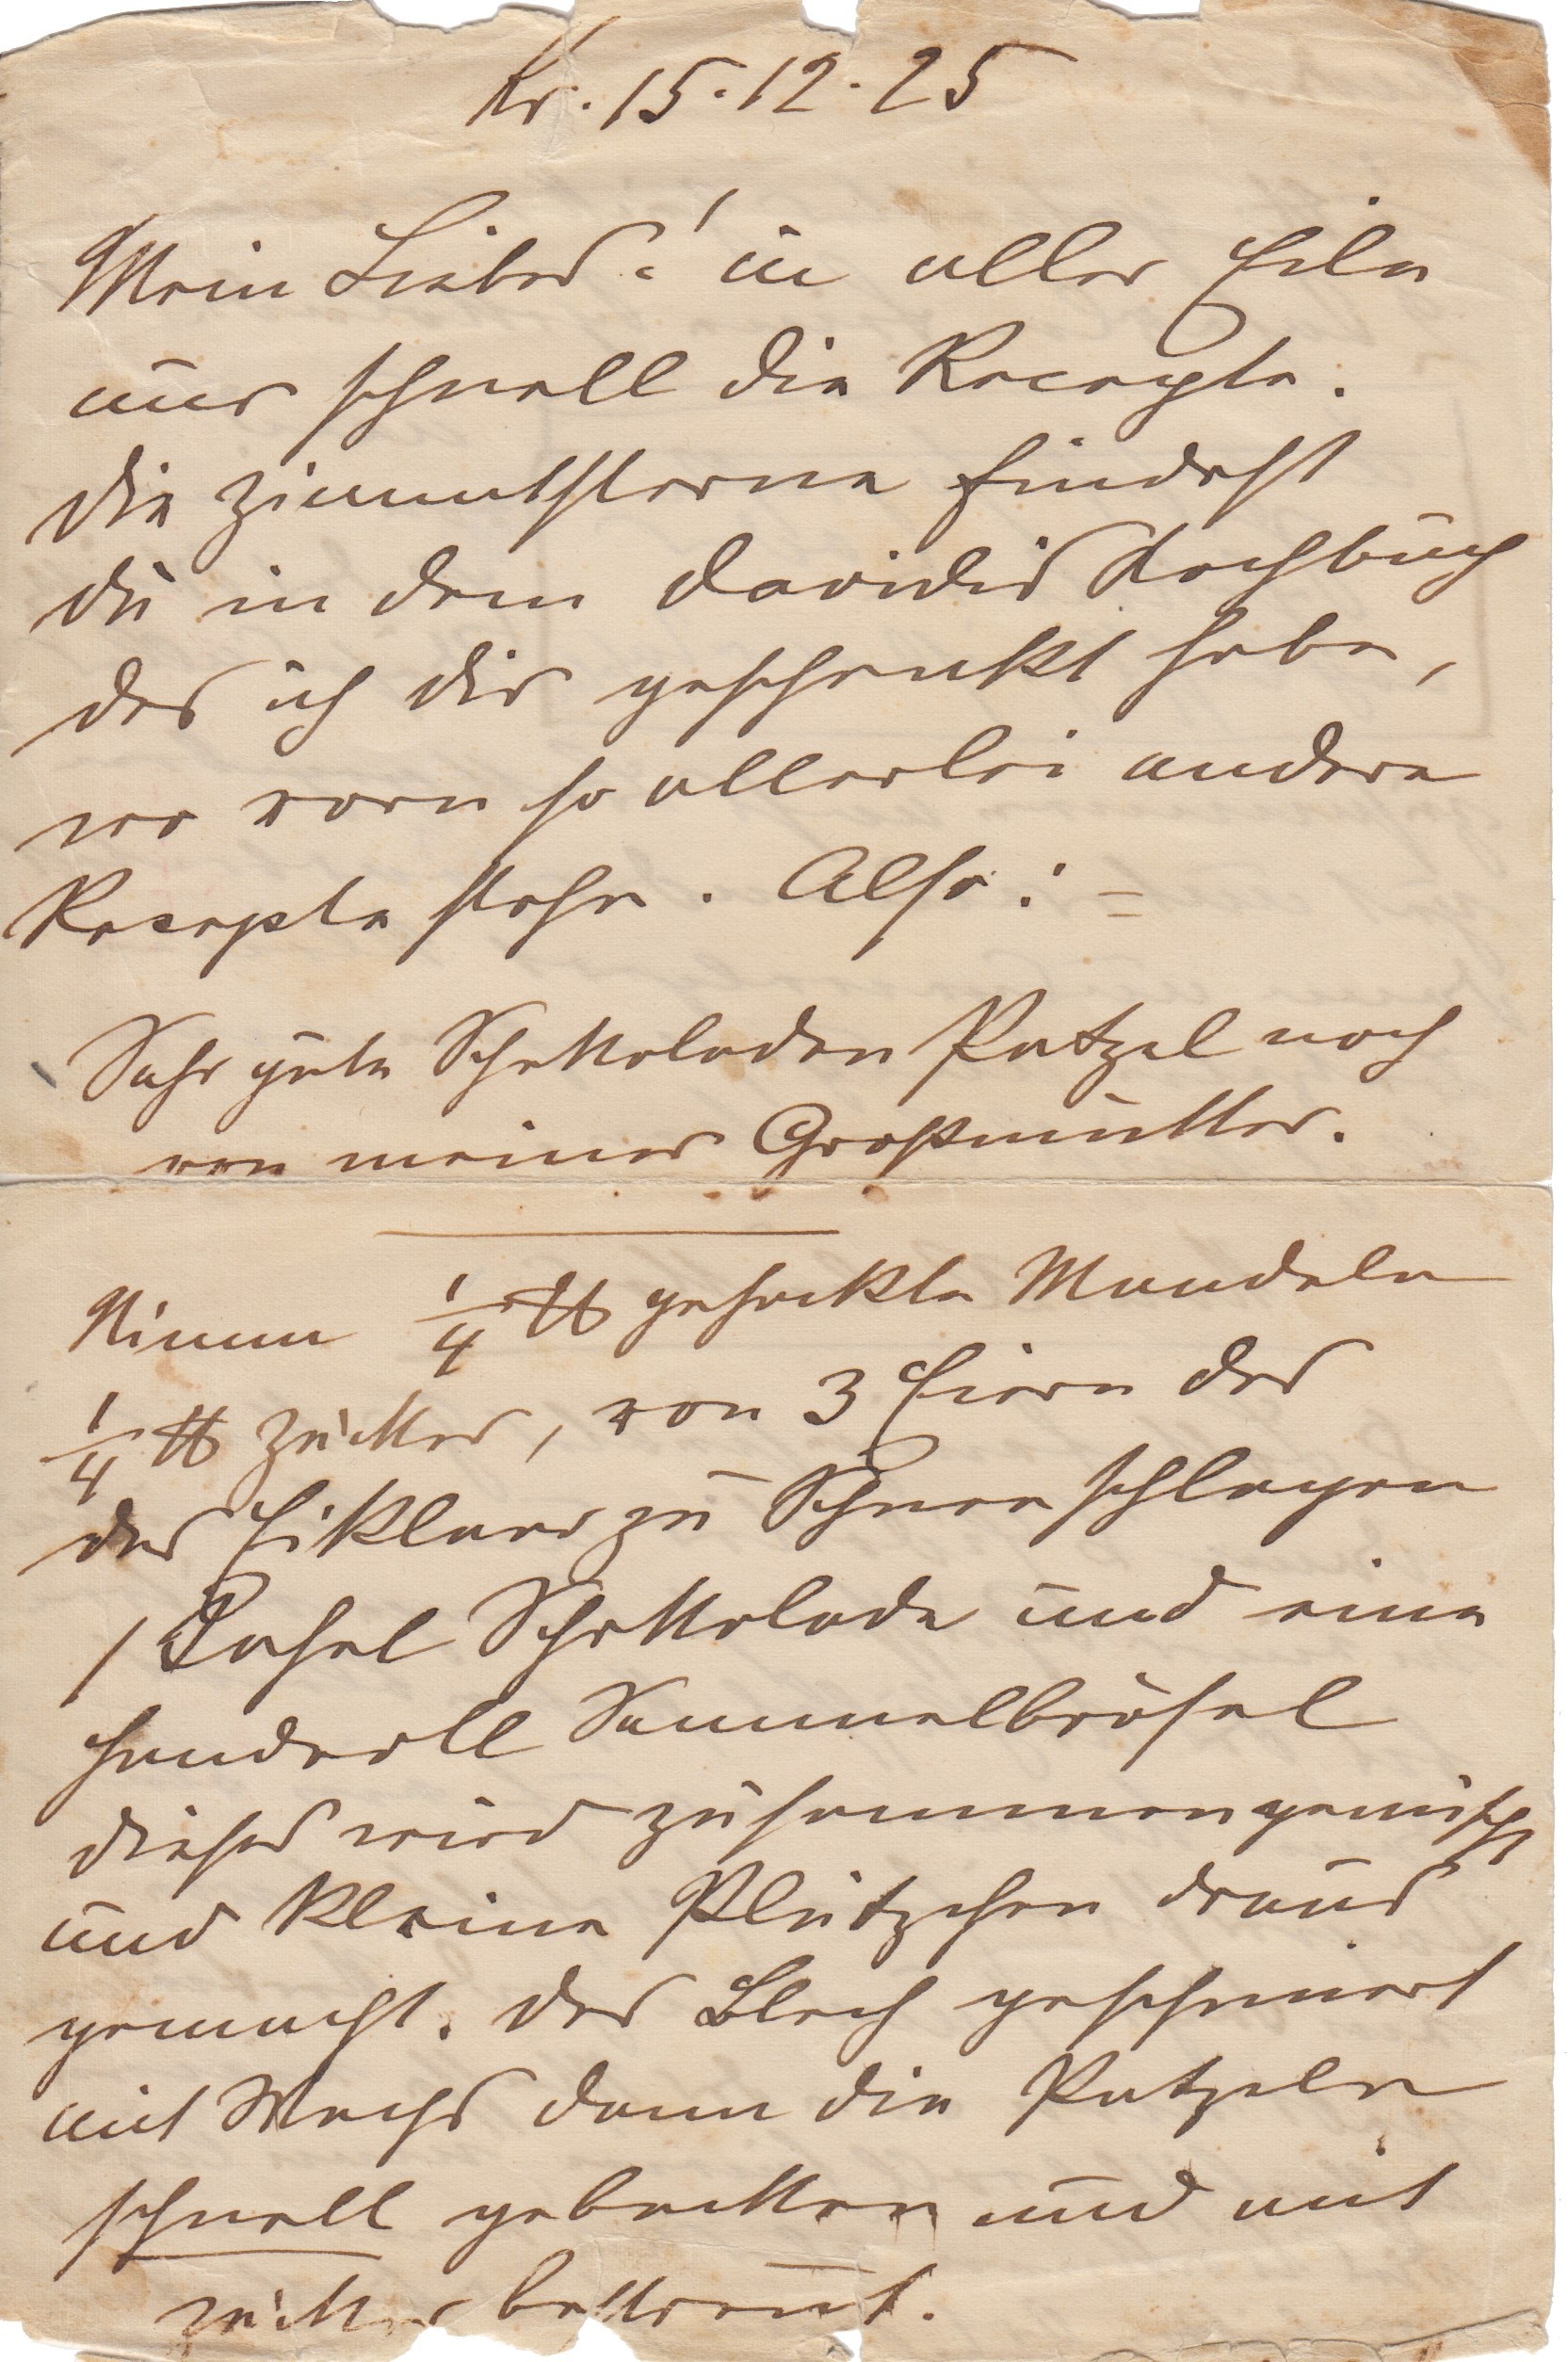 Kr. 15.12.25
Mein Liebes! in aller Eile
nur schnell die Recepte.
Die Zimmtsterne findest
Du in dem Davidis Kochbuch
das ich Dir geschenkt habe,
wo vorn so allerlei andere
Recepte stehn. Also: =
Sehr gute Schokoladen Patzel noch
von meiner Großmutter.
Nimm 1/4 ℔ gehackte Mandeln
1/4 ℔ Zucker, von 3 Eiern das
das Eiklar zu Schnee schlagen
1 Tafel Schokolade und eine
handvoll Semmelbrösel
dieses wird zusammengemischt
und kleine Plätzchen draus
gemacht. Das Blech geschmiert
mit Wachs dann die Patzeln
schnell gebacken und mit
Zucker bestreut.